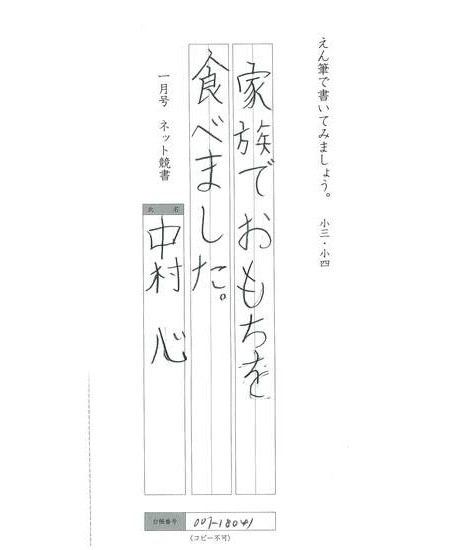 えん筆で書いてみましょう。 小三・小四
家族でおもちを
食べました。
一月号 ネット競書
氏名
中村 心
台帳番号 007-18041
(コピー不可)